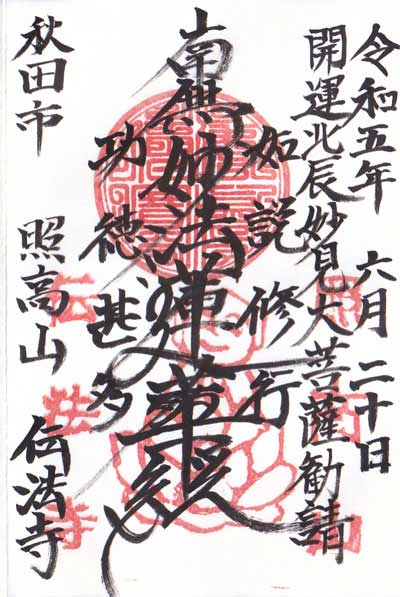 令和五年 六月 二十日
開運北辰妙見大菩薩勧請
如説修行
南無妙法蓮華経
功徳甚多
秋田市 照高山 伝法寺
伝法寺